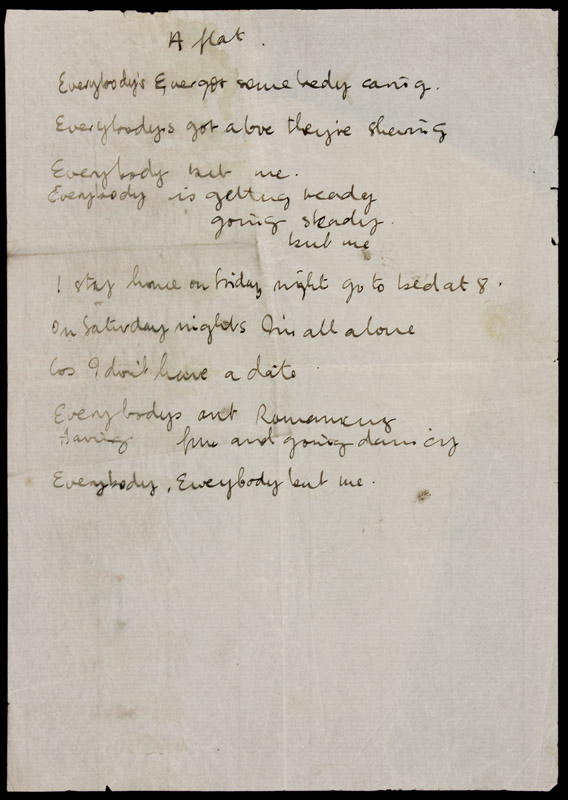 A flat.
Everybody's got somebody caring.
Everybodys got a love they're sharing
Everybody but me.
Everybody is getting ready
going steady.
but me
I stay home on Friday night go to bed at 8.
On Saturday nights I'm all alone
Cos I don't have a date
Everybodys out Romancing
Having fun and going dancing
Everybody, Everybody but me.